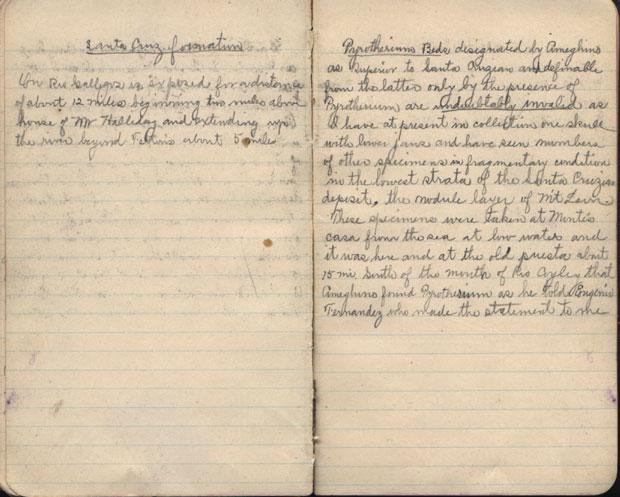 Santa Cruz formation
On Rio Gallegos is exposed for a distance
of about 12 miles beginning two miles above
house of Mr Halliday and extending up
the river beyond about 5 miles
Pyrotherium Beds designated by Ameghino
as superior to Santa Cruzian and definable
from the latter only by the presence of
Pyrotherium are undoubtably invalid as
I have at present in collection one skull
with lower jaws and have seen numbers
of other specimens in fragmentary condition
in the lowest strata of the Santa Cruzian
deposit, the nodule layer of Mt Leon
These specimens were taken at
casa from the sea at low water and
it was here and at the old about
15 mi South of the mouth of Rio that
Ameghino found Pyrotherium as he told Eugenio
Fernandez who made the statement to me